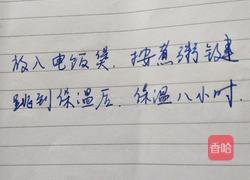 放入电饭煲.按煮粥键
跳到保温后.保温八小时.
香哈